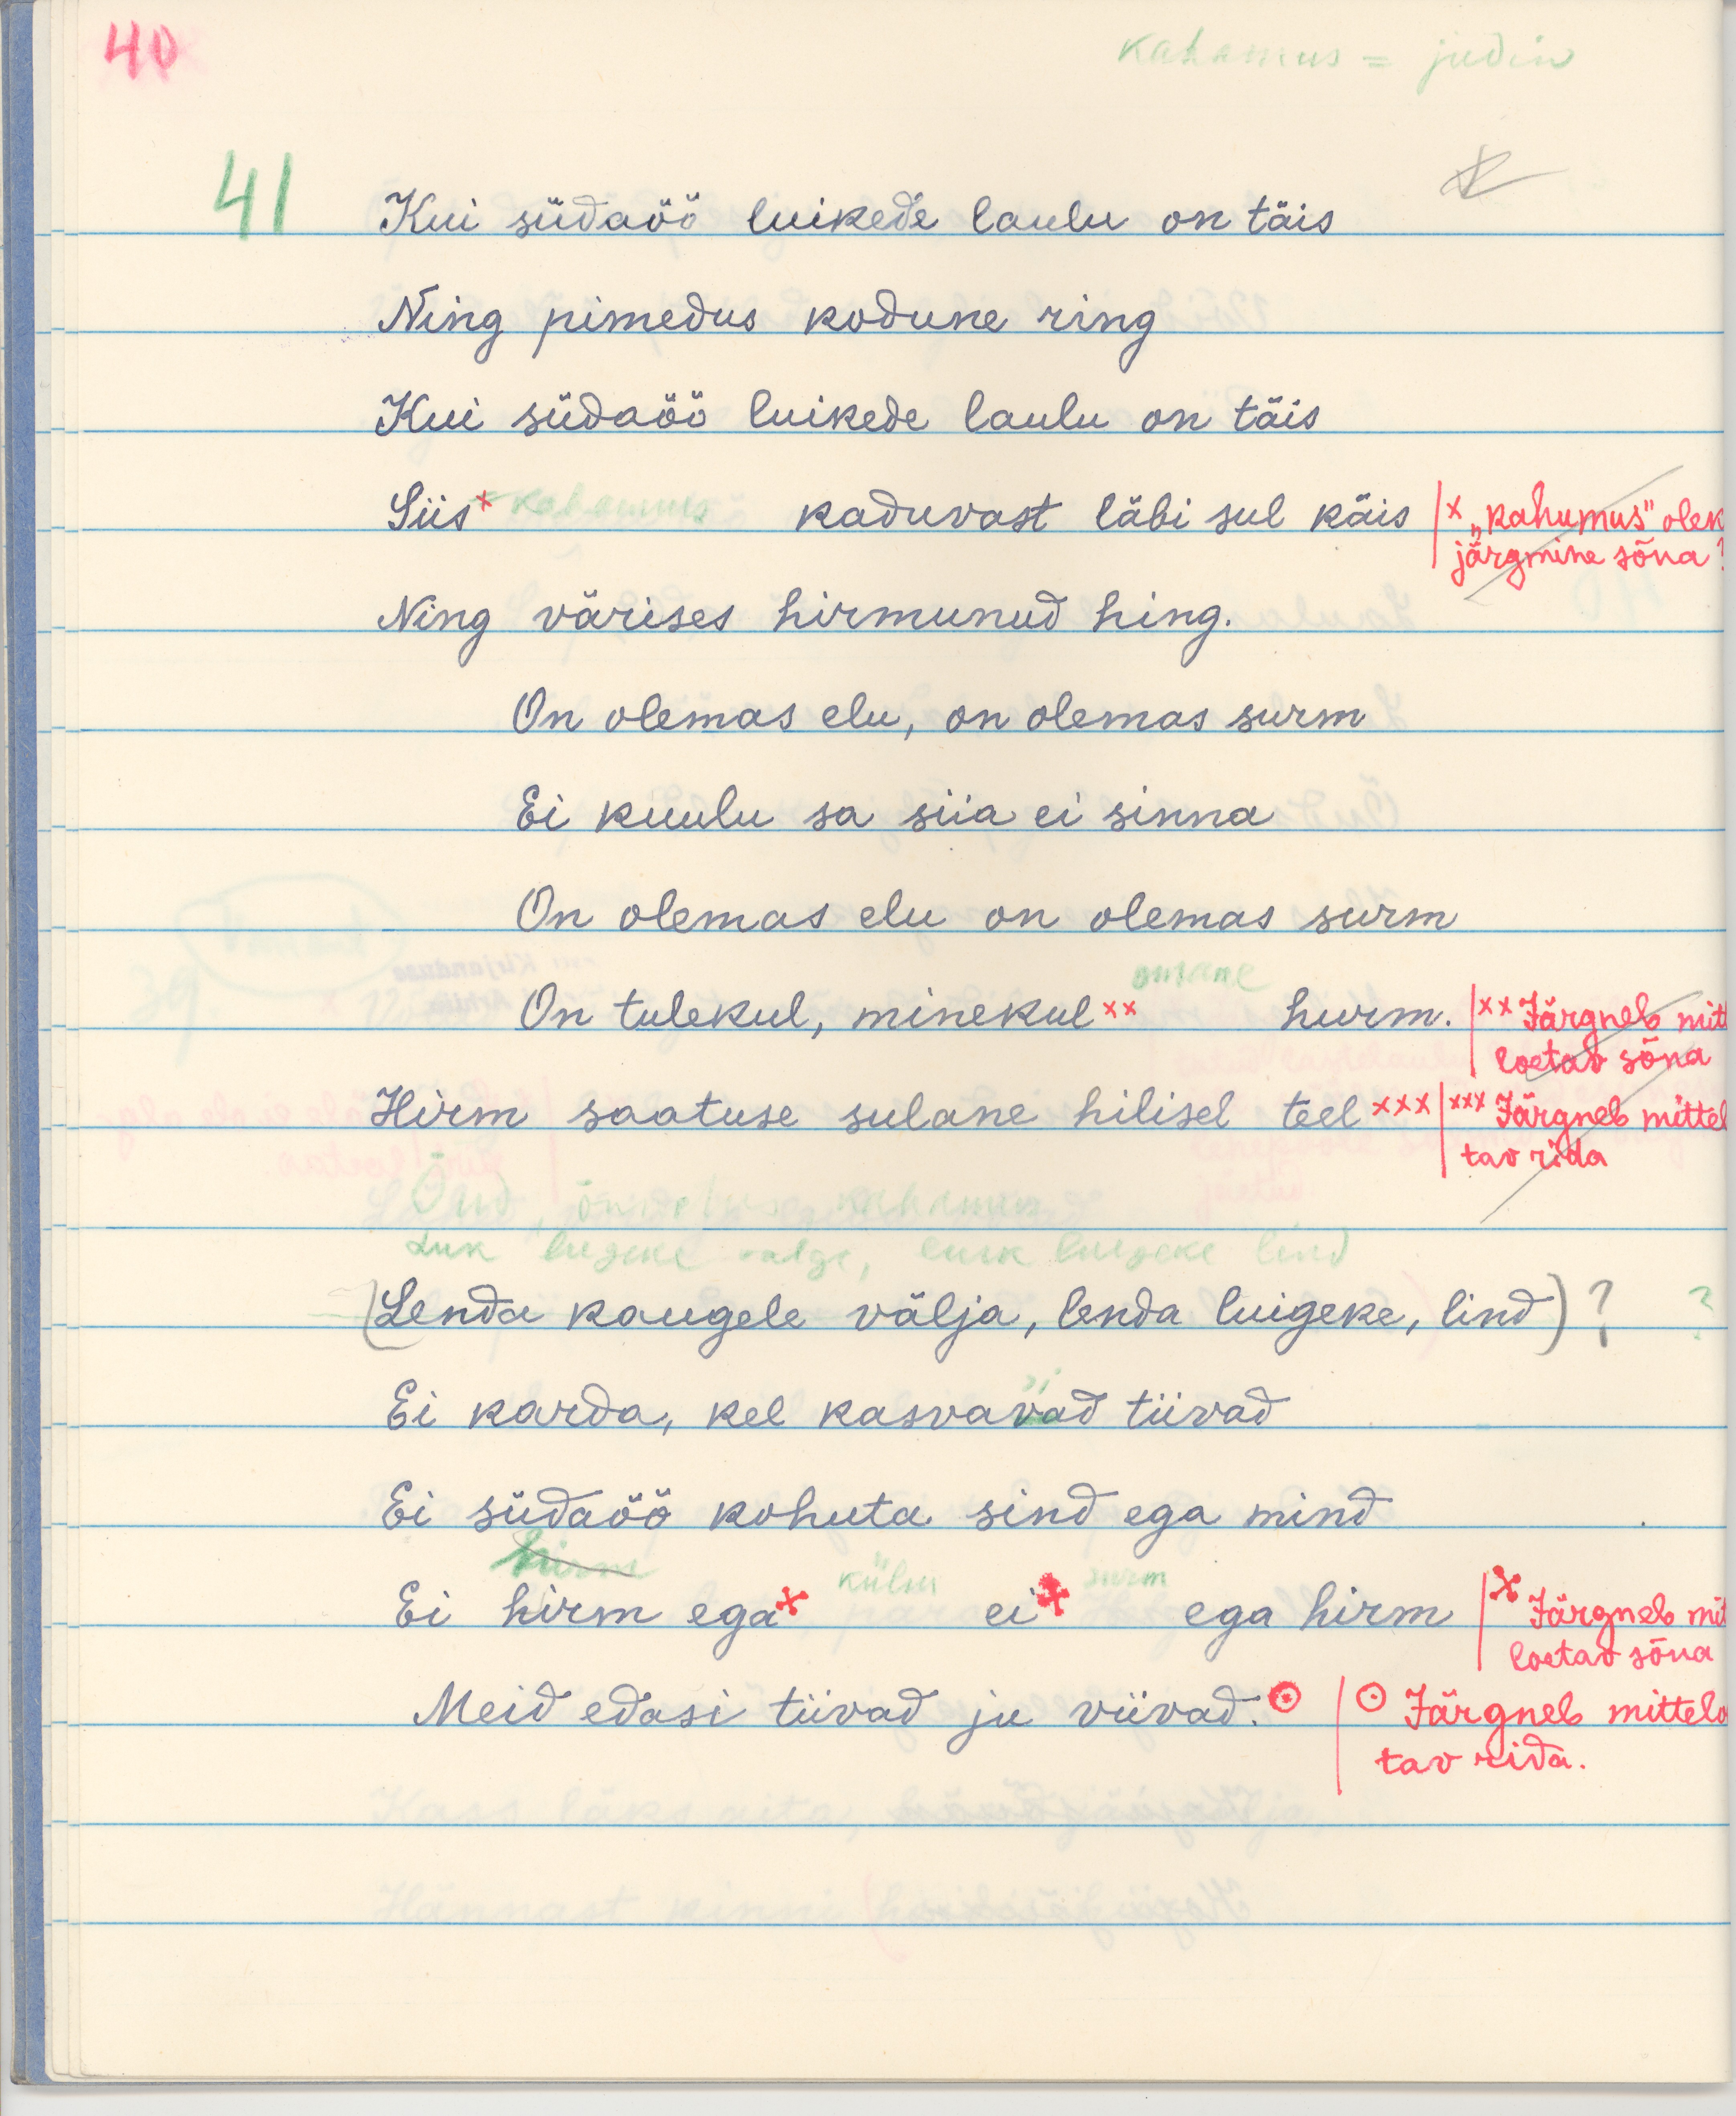 40
kahamus = judin
41
Kui südaöö luikede laulu on täis
Ning pimedus kodune ring
Kui südaöö luikede laulu on täis
Siis x kahamus kaduvast läbi sul käis | x „kahumus" olek
järgmine sõna?
Ning värises hirmunud hing.
On olemas elu, on olemas surm
Ei kuulu sa siia ei sinna
On olemas elu on olemas surm
omane
On tulekul, minekul xx hurm. | xx Järgneb mitt
loetav sõna
Hirm saatuse sulane hilisel teel xxx | xxx Järgneb mittel
tav rida
Õud, kahamus
luigeke valge, luik luigeke lind
(Lenda kaugele välja, lenda luigeke, lind) ? ?
si
Ei karda, kel kasvavad tiivad
Ei südaöö kohuta sind ega mind
hirm külm surm
Ei hirm ega x ei x ega hirm | x Järgneb mit
loetav sõna
Meid edasi tiivad ju viivad. ⊙ | ⊙ Järgneb mittelo
tav rida.